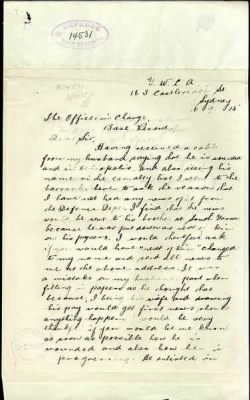 DEFENCE
14531
Y. W. C. A
163 Castlereagh St.
Sydney
The Officer in Charge,
Base Records
Dear Sir,
Having received a cable
from my husband saying that he is wounded
and in Heliopolis and also seeing his
name in the casualty list I went to the
barracks here to ask the reason that
I have not had any news of it from
the Defence Dep. I find that the news
would be sent to his brother at
because he was put down as next of kin
on his papers. I would therefore ask
if you would have "next of kin" changed
to my name and send all news to
me at the above address. It was
a mistake on my husband's part when
filling in papers as he thought that
because I being his wife and drawing
his pay would get first news should
anything happen. I would be very
thankful if you would let me know
as soon as possible how he is
wounded and also how he is
progressing. He enlisted in